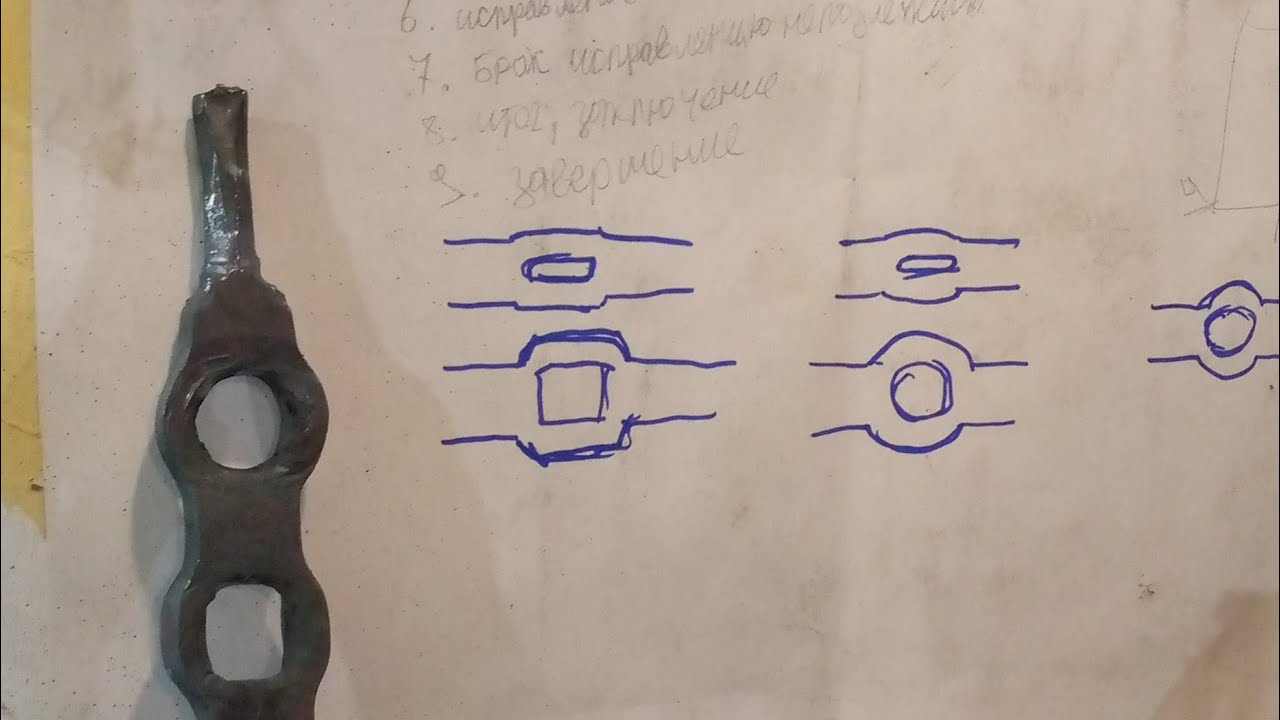 6. исправлени
7. Брак исправлению неподлежащий
8. итог, заключение
9. завершение